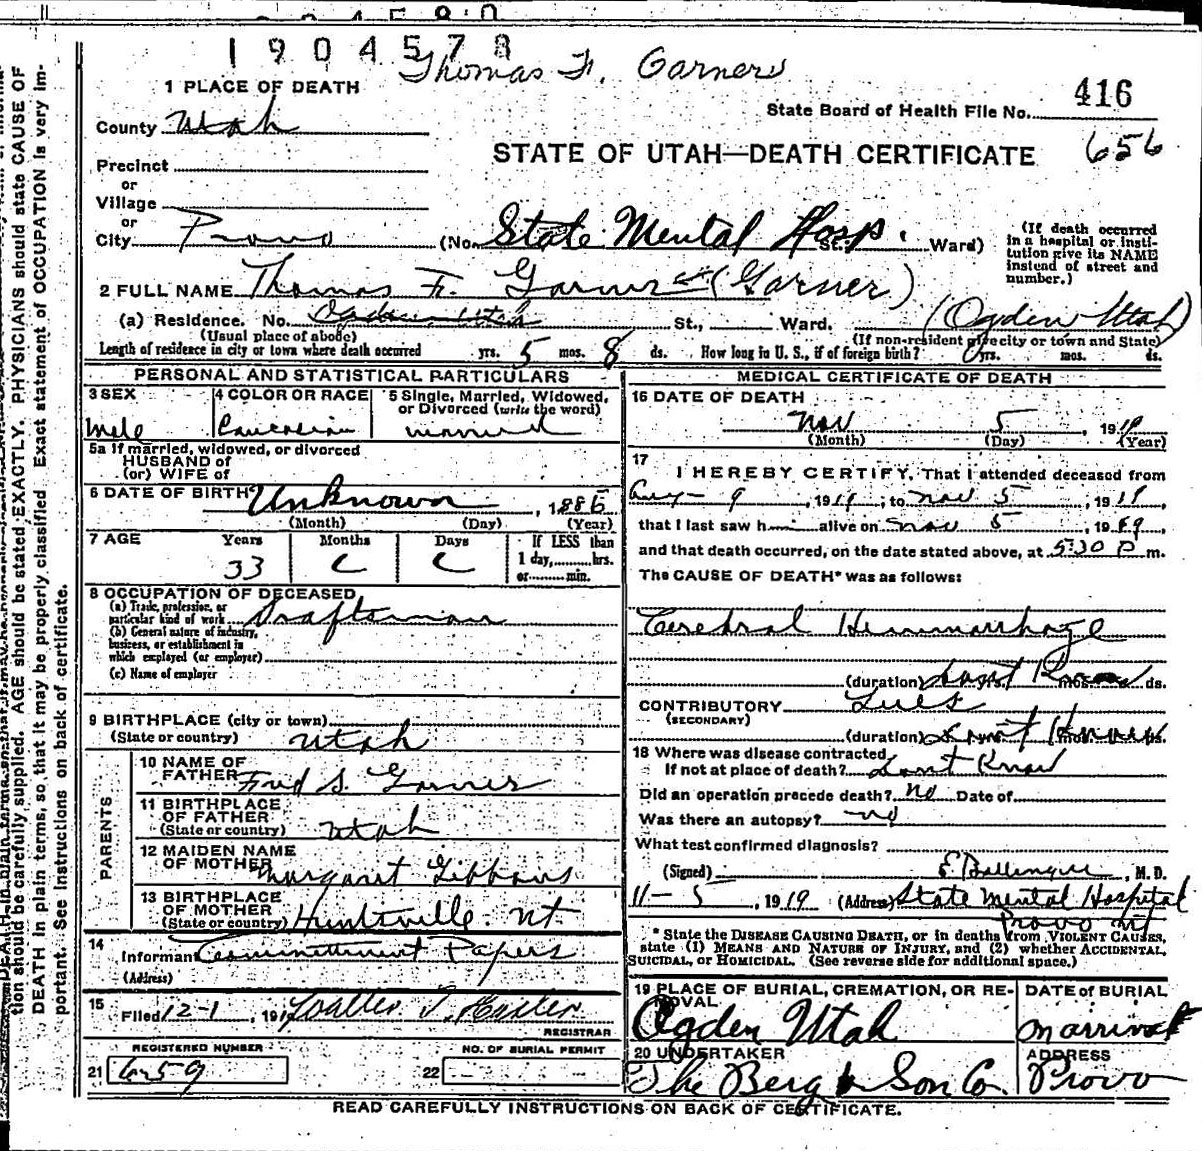 1904578
Thomas F. Garner
1 PLACE OF DEATH
State Board of Health File No. 416
County Utah
656
STATE OF UTAH—DEATH CERTIFICATE
Precinct
or
Village
or
City Provo (No. State Mental Hosp. St. Ward)
(If death occurred in a hospital or institution give its NAME instead of street and number.)
2 FULL NAME Thomas F. Garner (Garner)
(a) Residence. No. Ogden Utah St., Ward. (Ogden Utah)
(Usual place of abode) (If non-resident give city or town and State)
Length of residence in city or town where death occurred yrs. 5 mos. 8 ds. How long in U. S., if of foreign birth? yrs. mos. ds.
PERSONAL AND STATISTICAL PARTICULARS
3 SEX
Male
4 COLOR OR RACE
Caucasian
5 Single, Married, Widowed, or Divorced (write the word)
married
5a If married, widowed, or divorced
HUSBAND of
(or) WIFE of
6 DATE OF BIRTH Unknown, 1886
(Month) (Day) (Year)
7 AGE Years Months Days If LESS than
33 1 day, hrs.
or min.
8 OCCUPATION OF DECEASED
(a) Trade, profession, or
particular kind of work Draftsman
(b) General nature of industry,
business, or establishment in
which employed (or employer)
(c) Name of employer
9 BIRTHPLACE (city or town)
(State or country) Utah
PARENTS
10 NAME OF
FATHER Fred S. Garner
11 BIRTHPLACE
OF FATHER
(State or country) Utah
12 MAIDEN NAME
OF MOTHER Margaret Gibbons
13 BIRTHPLACE
OF MOTHER
(State or country) Huntsville Ut
14
Informant Committment Papers
(Address)
15
Filed 12-1, 191 Walter T. Hasler
REGISTRAR
REGISTERED NUMBER
21 659
NO. OF BURIAL PERMIT
22
MEDICAL CERTIFICATE OF DEATH
16 DATE OF DEATH
Nov 5, 1919
(Month) (Day) (Year)
17
I HEREBY CERTIFY, That I attended deceased from
Aug 9, 1919, to Nov 5, 1919,
that I last saw h alive on Nov 5, 1919,
and that death occurred, on the date stated above, at 5:30 P m.
The CAUSE OF DEATH* was as follows:
Cerebral Hemmorrhage
(duration) dont Know yrs. mos. ds.
CONTRIBUTORY Lues
(SECONDARY)
(duration) Dont Know yrs. mos. ds.
18 Where was disease contracted
if not at place of death? Dont Know
Did an operation precede death? no Date of
Was there an autopsy? no
What test confirmed diagnosis?
(Signed) E Ballinger, M. D.
11-5, 1919 (Address) State Mental Hospital
Provo Ut
* State the DISEASE CAUSING DEATH, or in deaths from VIOLENT CAUSES,
state (1) MEANS AND NATURE OF INJURY, and (2) whether ACCIDENTAL,
SUICIDAL, or HOMICIDAL. (See reverse side for additional space.)
19 PLACE OF BURIAL, CREMATION, OR REMOVAL
Ogden Utah
DATE of BURIAL
20 UNDERTAKER
The Berg & Son Co.
ADDRESS
Provo
READ CAREFULLY INSTRUCTIONS ON BACK OF CERTIFICATE.
tion should be carefully supplied. AGE should be stated EXACTLY. PHYSICIANS should state CAUSE OF
DEATH in plain terms, so that it may be properly classified. Exact statement of OCCUPATION is very im-
portant. See Instructions on back of certificate.